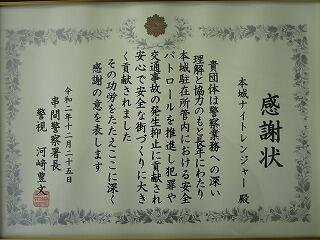 感謝状
本城ナイトレンジャー 殿
貴団体は警察業務への深い
理解と協力のもと長年にわたり
本城駐在所管内における安全
パトロールを推進し犯罪や
交通事故の発生抑止に貢献され
安心で安全な街づくりに大き
く貢献されました
その功労をたたえここに深く
感謝の意を表します
令和二年十二月二十五日
串間警察署長
警視 河崎豊文